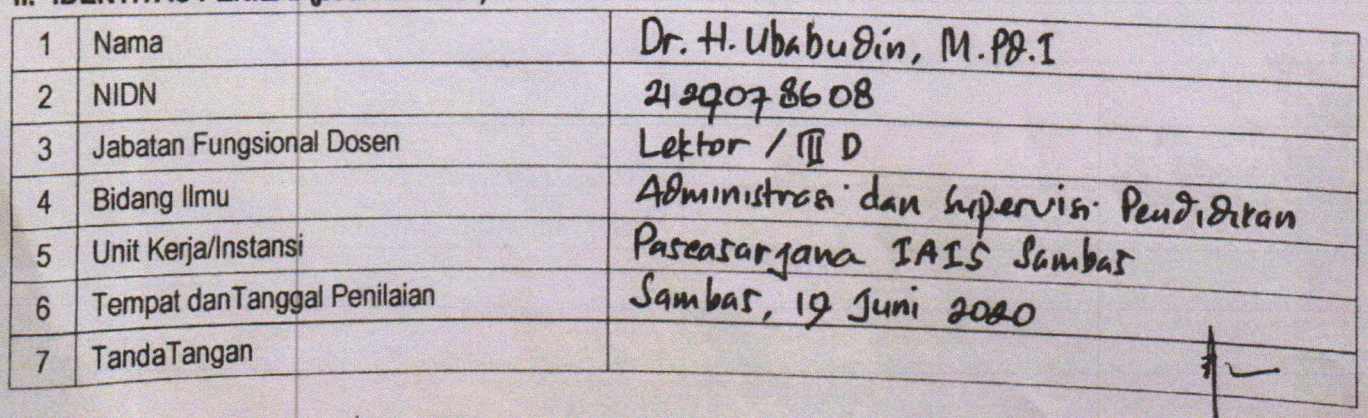 1 Nama Dr. H. Ubabudin, M.Pd.I
2 NIDN 2129078608
3 Jabatan Fungsional Dosen Lektor / III D
4 Bidang Ilmu Administrasi dan Supervisi Pendidikan
5 Unit Kerja/Instansi Pascasarjana IAIS Sambas
6 Tempat danTanggal Penilaian Sambas, 19 Juni 2020
7 TandaTangan